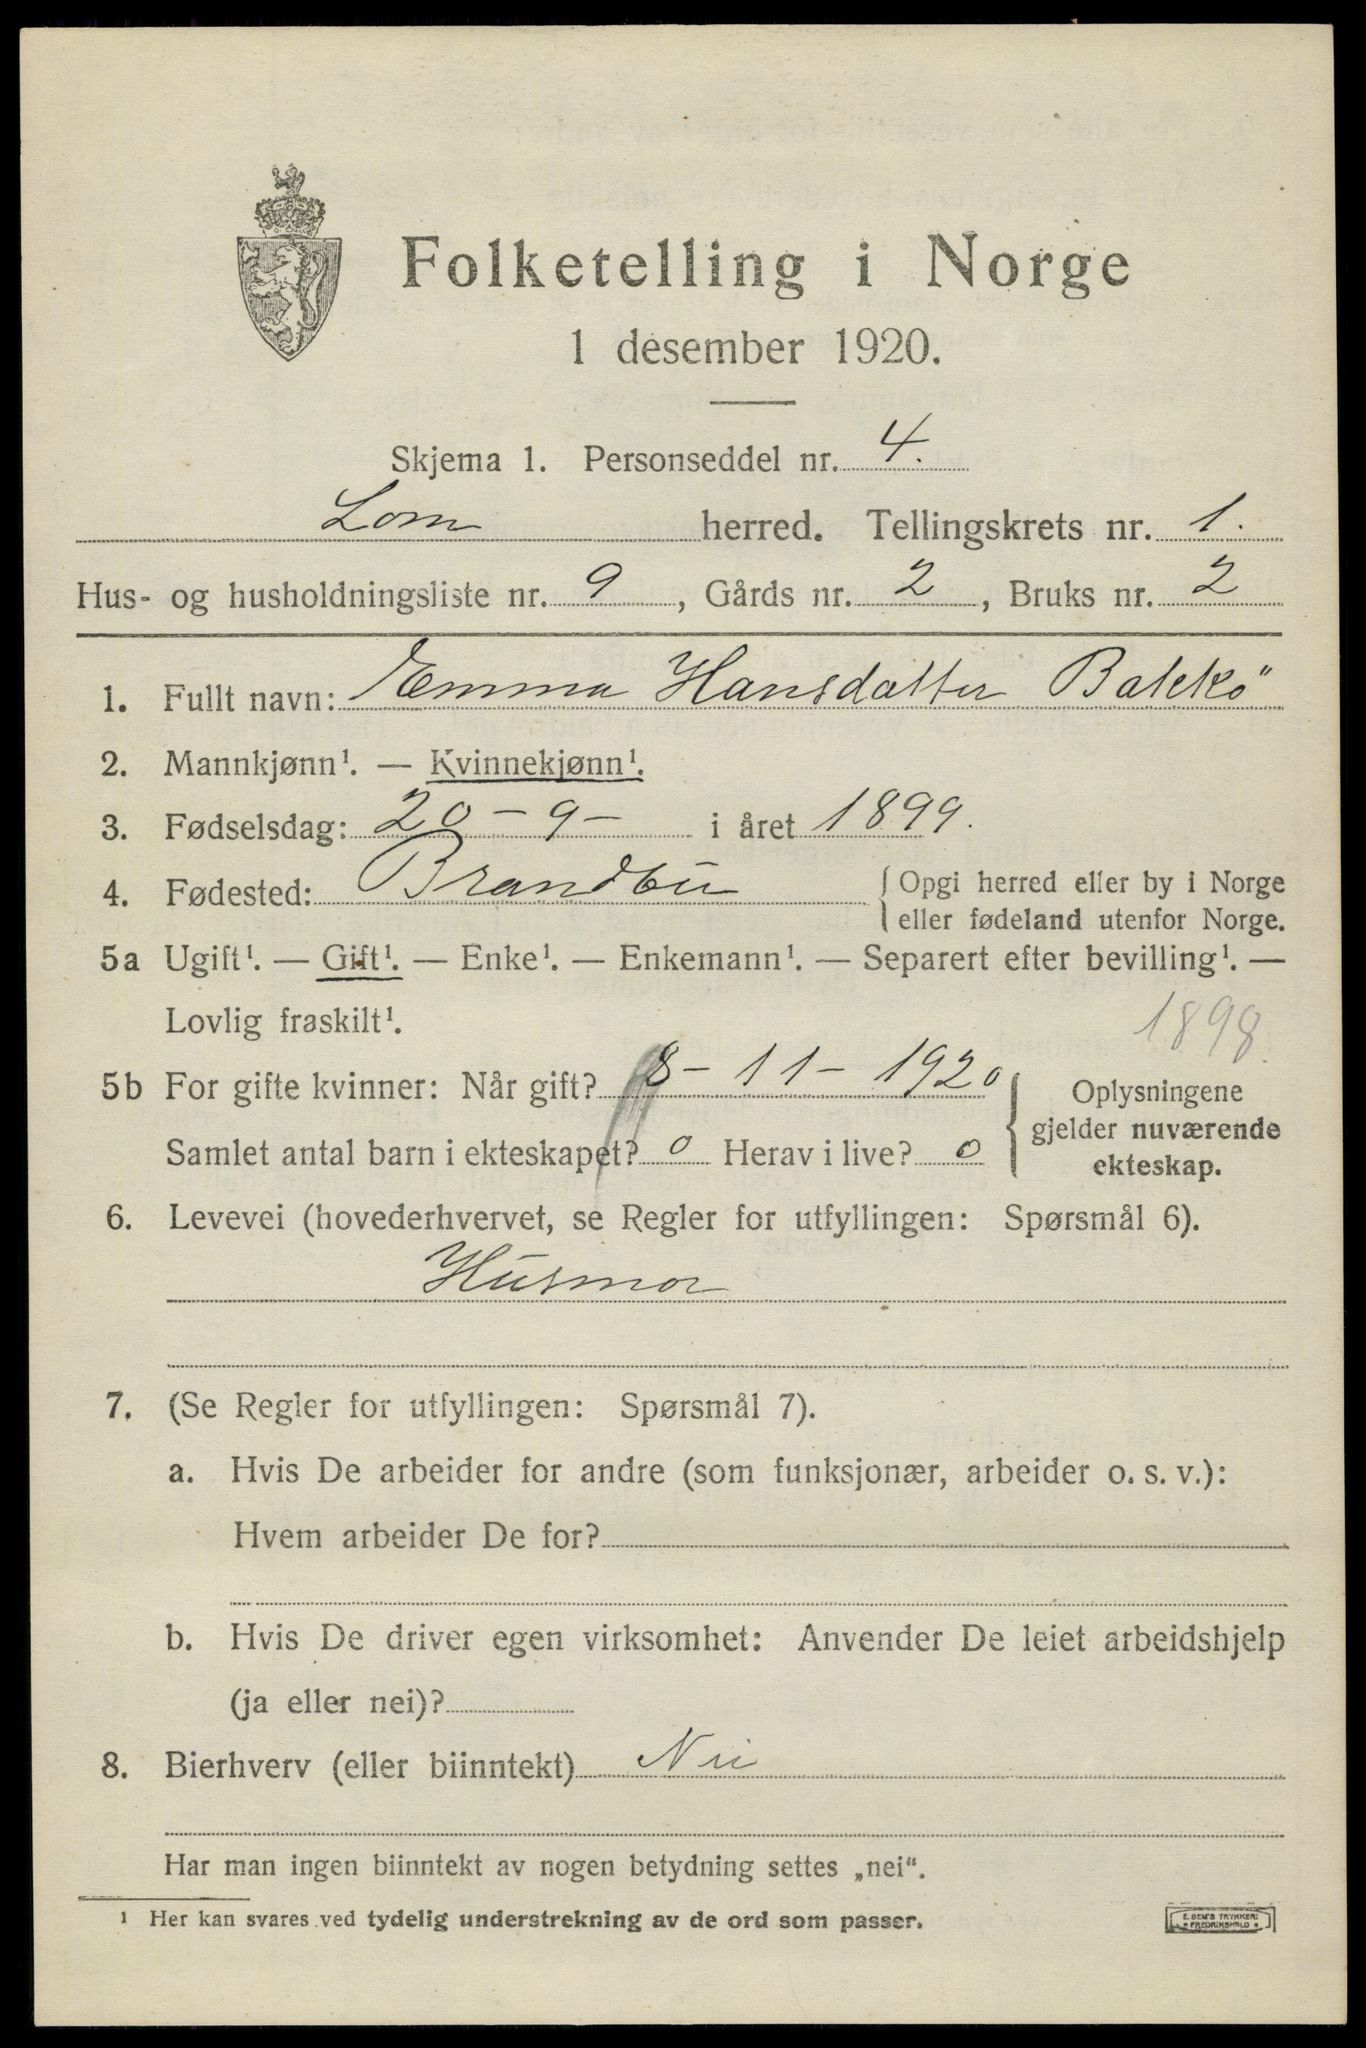 Folketelling i Norge
1 desember 1920.
Skjema 1. Personseddel nr. 4.
Lom herred. Tellingskrets nr. 1.
Hus- og husholdningsliste nr. 9, Gårds nr. 2, Bruks nr. 2
1. Fullt navn: Emma Hansdatter Bakkö
2. Mannkjønn¹. — Kvinnekjønn¹.
3. Fødselsdag: 20-9- i året 1899.
4. Fødested: Brandbu { Opgi herred eller by i Norge
eller fødeland utenfor Norge.
5a Ugift¹. — Gift¹. — Enke¹. — Enkemann¹. — Separert efter bevilling¹. —
Lovlig fraskilt¹.
1898
5b For gifte kvinner: Når gift? 8-11-1920
Samlet antal barn i ekteskapet? 0 Herav i live? 0
Oplysningene
gjelder nuværende
ekteskap.
6. Levevei (hovederhvervet, se Regler for utfyllingen: Spørsmål 6).
Husmor
7. (Se Regler for utfyllingen: Spørsmål 7).
a. Hvis De arbeider for andre (som funksjonær, arbeider o. s. v.):
Hvem arbeider De for?
b. Hvis De driver egen virksomhet: Anvender De leiet arbeidshjelp
(ja eller nei)?
8. Bierhverv (eller biinntekt) Nei
Har man ingen biinntekt av nogen betydning settes „nei“.
¹ Her kan svares ved tydelig understrekning av de ord som passer.
E. SEM'S TRYKKERI
FREDRIKSHALD